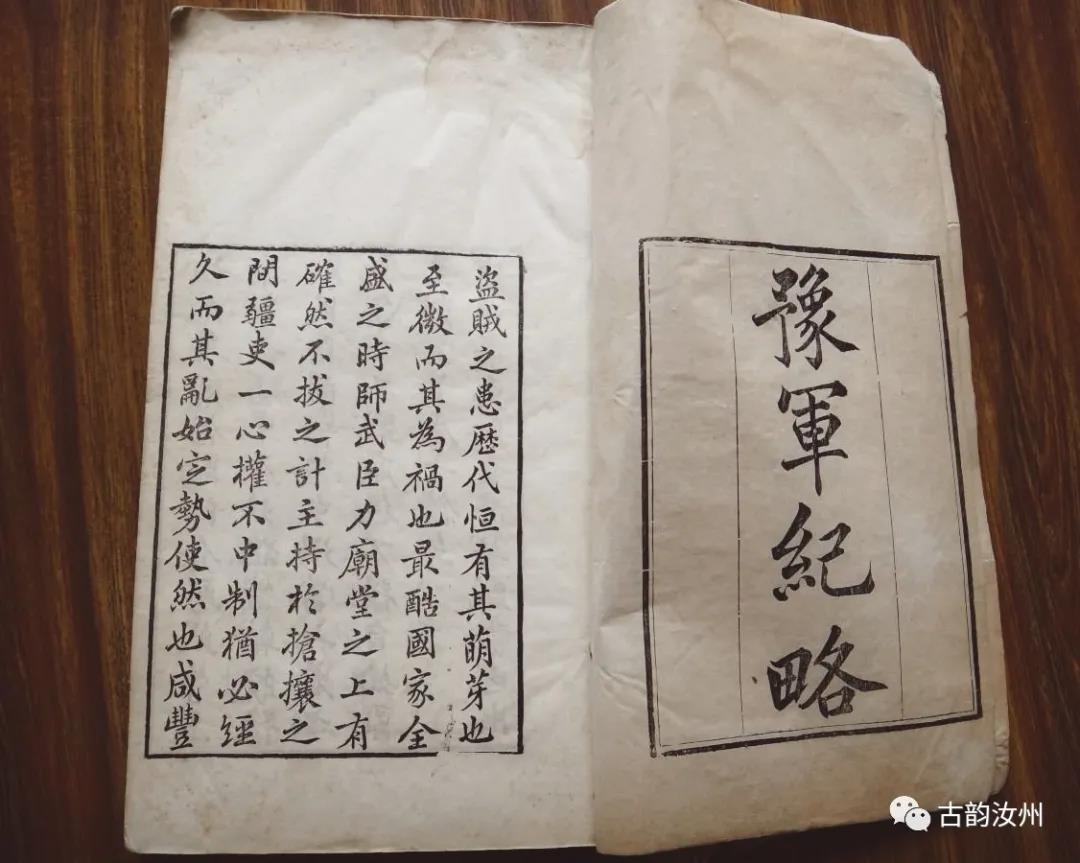 豫軍紀略
盜賊之患歷代恒有其萌芽也
至微而其為禍也最酷國家全
盛之時師武臣力廟堂之上有
確然不拔之計主持於搶攘之
間疆吏一心權不中制猶必經
久而其亂始定勢使然也咸豐
古韵汝州